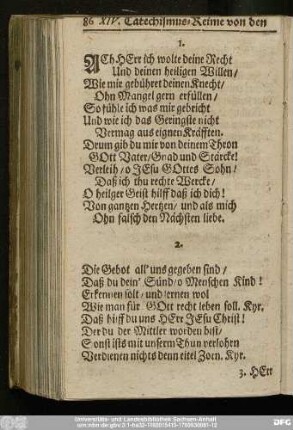 86 XIV. Catechismus-Reime von den
1.
ACh HErr ich wolte deine Recht
Und deinen heiligen Willen /
Wie mir gebühret deinen Knecht /
Ohn Mangel gern erfüllen /
So fühle ich was mir gebricht
Und wie ich das Geringste nicht
Vermag aus eignen Kräfften.
Drum gib du mir von deinem Thron
GOtt Vater / Gnad und Stärcke!
Verleih / o JEsu GOttes Sohn /
Daß ich thu rechte Wercke /
O heilger Geist hilff daß ich dich!
Von gantzen Hertzen / und als mich
Ohn falsch den Nächsten liebe.
2.
Die Gebot all' uns gegeben sind /
Daß du dein' Sünd / o Menschen Kind!
Erkennen solt / und lernen wol
Wie man für GOtt recht leben soll. Kyr.
Daß hilff du uns HErr JEsu Christ!
Der du der Mittler worden bist /
Sonst ists mit unserm Thun verlohren
Verdienen nichts denn eitel Zorn. Kyr.
3. HErr
Universitäts- und Landesbibliothek Sachsen-Anhalt